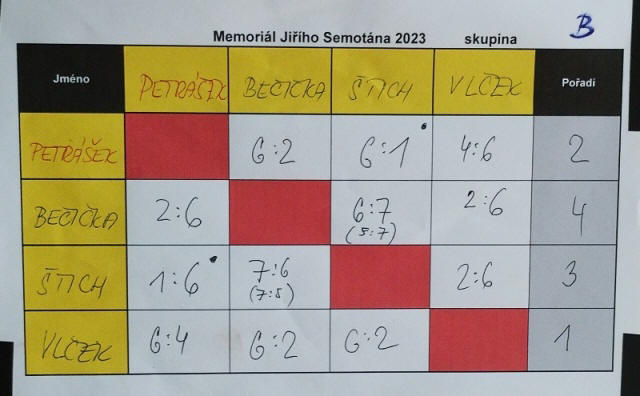 Memoriál Jiřího Semotána 2023 skupina B
Jméno PETRÁŠEK BEČIČKA ŠTICH VLČEK Pořadí
PETRÁŠEK 6:2 6:1 4:6 2
BEČIČKA 2:6 6:7 2:6 4
(5:7)
ŠTICH 1:6 7:6 2:6 3
(7:5)
VLČEK 6:4 6:2 6:2 1